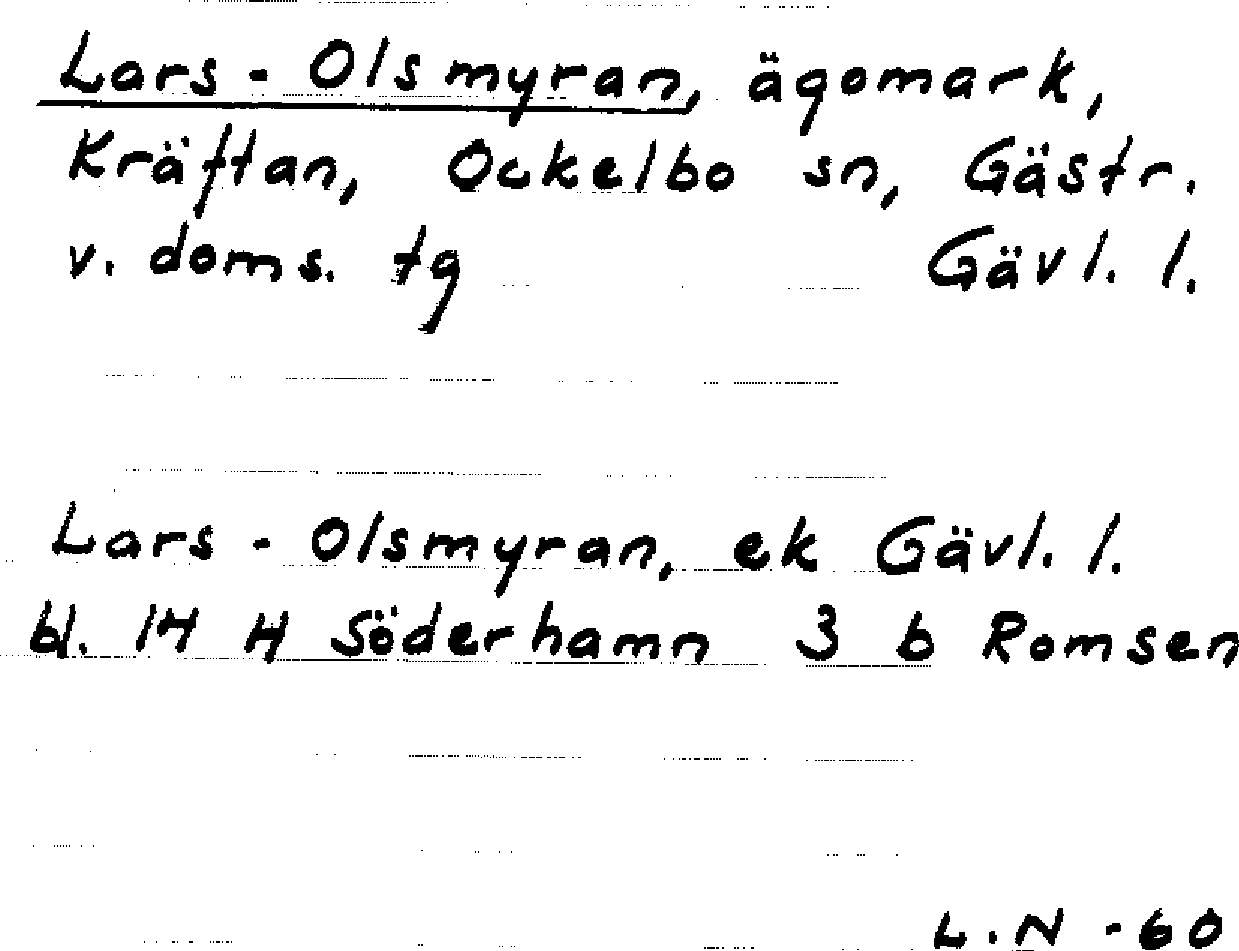 Lars - Olsmyran, ägomark,
Kräftan, Ockelbo sn, Gästr.
v. doms. tg Gävl. l.
Lars - Olsmyran, ek Gävl. l.
bl. 14 H Söderhamn 3 b Romsen
L.N -60